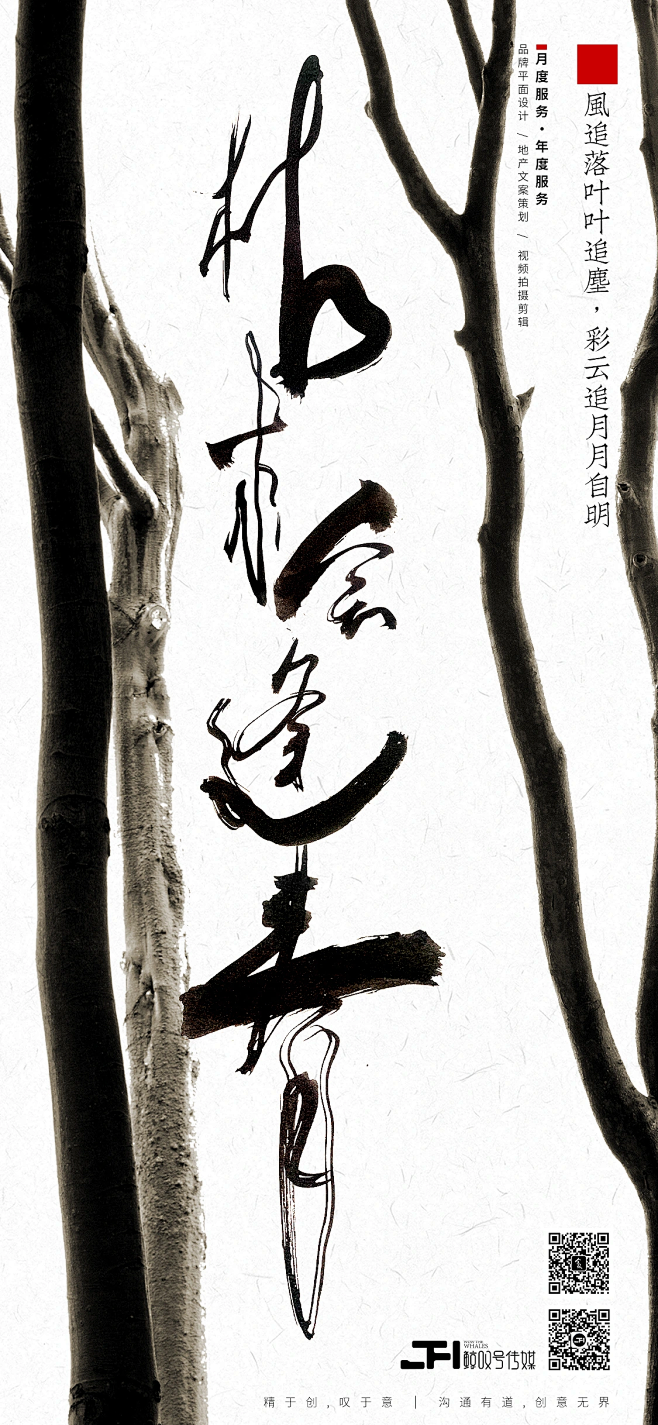 風追落叶叶追塵，彩云追月月自明
月度服务·年度服务
品牌平面设计 / 地产文案策划 / 视频拍摄剪辑
枯木会逢春
WOW FOR
WHALES
鲸叹号传媒
精于创,叹于意 | 沟通有道,创意无界